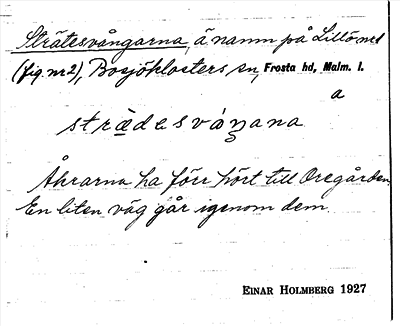 Strätesvångarna, änamn på Lillö nr 1
(fig. nr 2), Bosjöklosters sn, Frosta hd, Malm. l.
a
strädesváŋana
Åkrarna ha förr hört till Oregården.
En liten väg går igenom dem.
EINAR HOLMBERG 1927